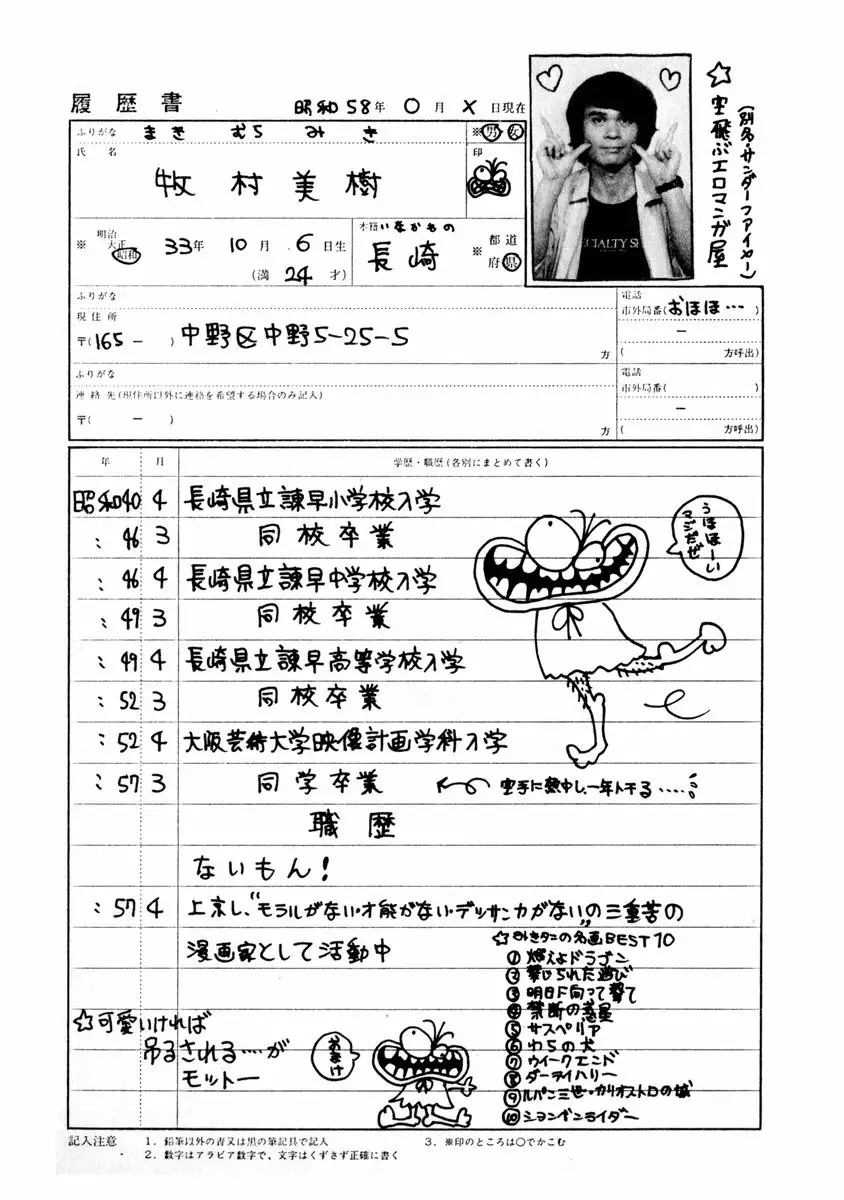 履歴書
昭和58年 〇月 ×日現在
ふりがな まき むら みき
※男・女
氏 名 牧村美樹
印
☆空飛ぶエロマンガ屋
(別名・サンダーファイヤー)
※ 明治 大正 昭和 33年 10月 6日生
(満 24 才)
本籍 いなかもの
長崎 ※ 都道府県
ふりがな
現住所
〒(165 － ) 中野区中野5-25-5
方
電話
市外局番(おほほ…)
－
( 方呼出)
ふりがな
連絡先(現住所以外に連絡を希望する場合のみ記入)
〒( － )
方
電話
市外局番( )
－
( 方呼出)
年 月 学歴・職歴(各別にまとめて書く)
昭和40 4 長崎県立諫早小学校入学
: 46 3 同校卒業
: 46 4 長崎県立諫早中学校入学
: 49 3 同校卒業
: 49 4 長崎県立諫早高等学校入学
: 52 3 同校卒業
: 52 4 大阪芸術大学映像計画学科入学
: 57 3 同学卒業
空手に熱中し、一年トチる・・・・・
うほほーい
マジだぜ
職歴
ないもん!
: 57 4 上京し、"モラルがない・才能がない・デッサン力がない"の三重苦の
漫画家として活動中
☆可愛いければ
吊るされる・・・・が
モットー
おまけ
の名画BEST10
① 燃えよドラゴン
② 禁じられた遊び
③ 明日に向って撃て
④ 禁断の惑星
⑤ サスペリア
⑥ わらの犬
⑦ ウイークエンド
⑧ ダーティハリー
⑨ ルパン三世・カリオストロの城
⑩ シャンドライダー
記入注意 1. 鉛筆以外の青又は黒の筆記具で記入
2. 数字はアラビア数字で、文字はくずさず正確に書く
3. ※印のところは○でかこむ
SPECIALTY